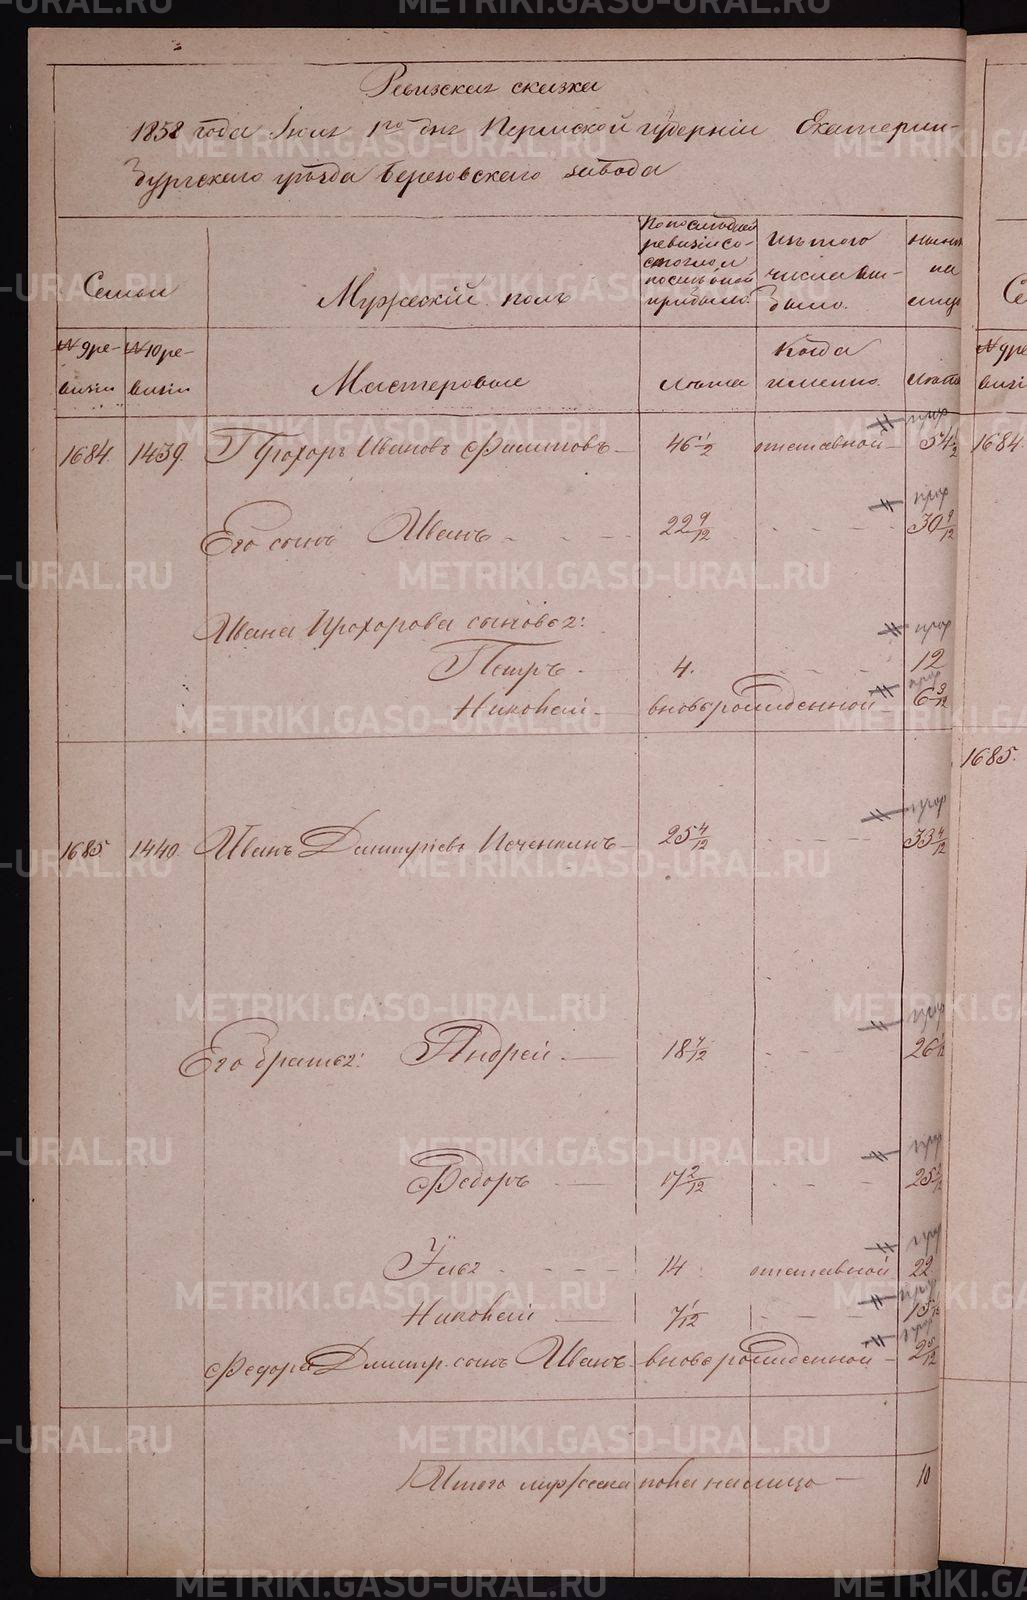 Ревизская сказка
1858 года Iюня 1го дня Пермской губернiи Екатерин-
бургского уѣзда Березовского завода
Семьи
Мужескiй полъ
По последней
ревизiи со-
стояло и
после оной
прибыло
Изъ того
числа вы-
было.
на
лицо
№ 9 ре-
визiи
№ 10 ре-
визiи
Мастеровые
Лѣта
Когда
именно.
Лѣта
№ 9 ре
визi
1684. 1439. Прохоръ Ивановъ Филиповъ 46 1/2 отставной 54 1/2 1684
Его сынъ Иванъ 22 9/12 30 9/12
Ивана Прохорова сыновья:
Петръ 4. 12
Николай вновьрожденной 6 3/12
1685.
1685 1440 Иванъ Дмитрiевъ Печенкинъ 25 4/12 33 4/12
Его братья: Андрей 18 1/12 26 1/12
Федоръ 17 2/12 25 2/12
Илья 14 отставной 22
Николай 7 1/12 15 1/12
Федора Дмитр. сынъ Иванъ вновьрожденной 2 5/12
Итого мужеска пола налицо 10
METRIKI.GASO-URAL.RU